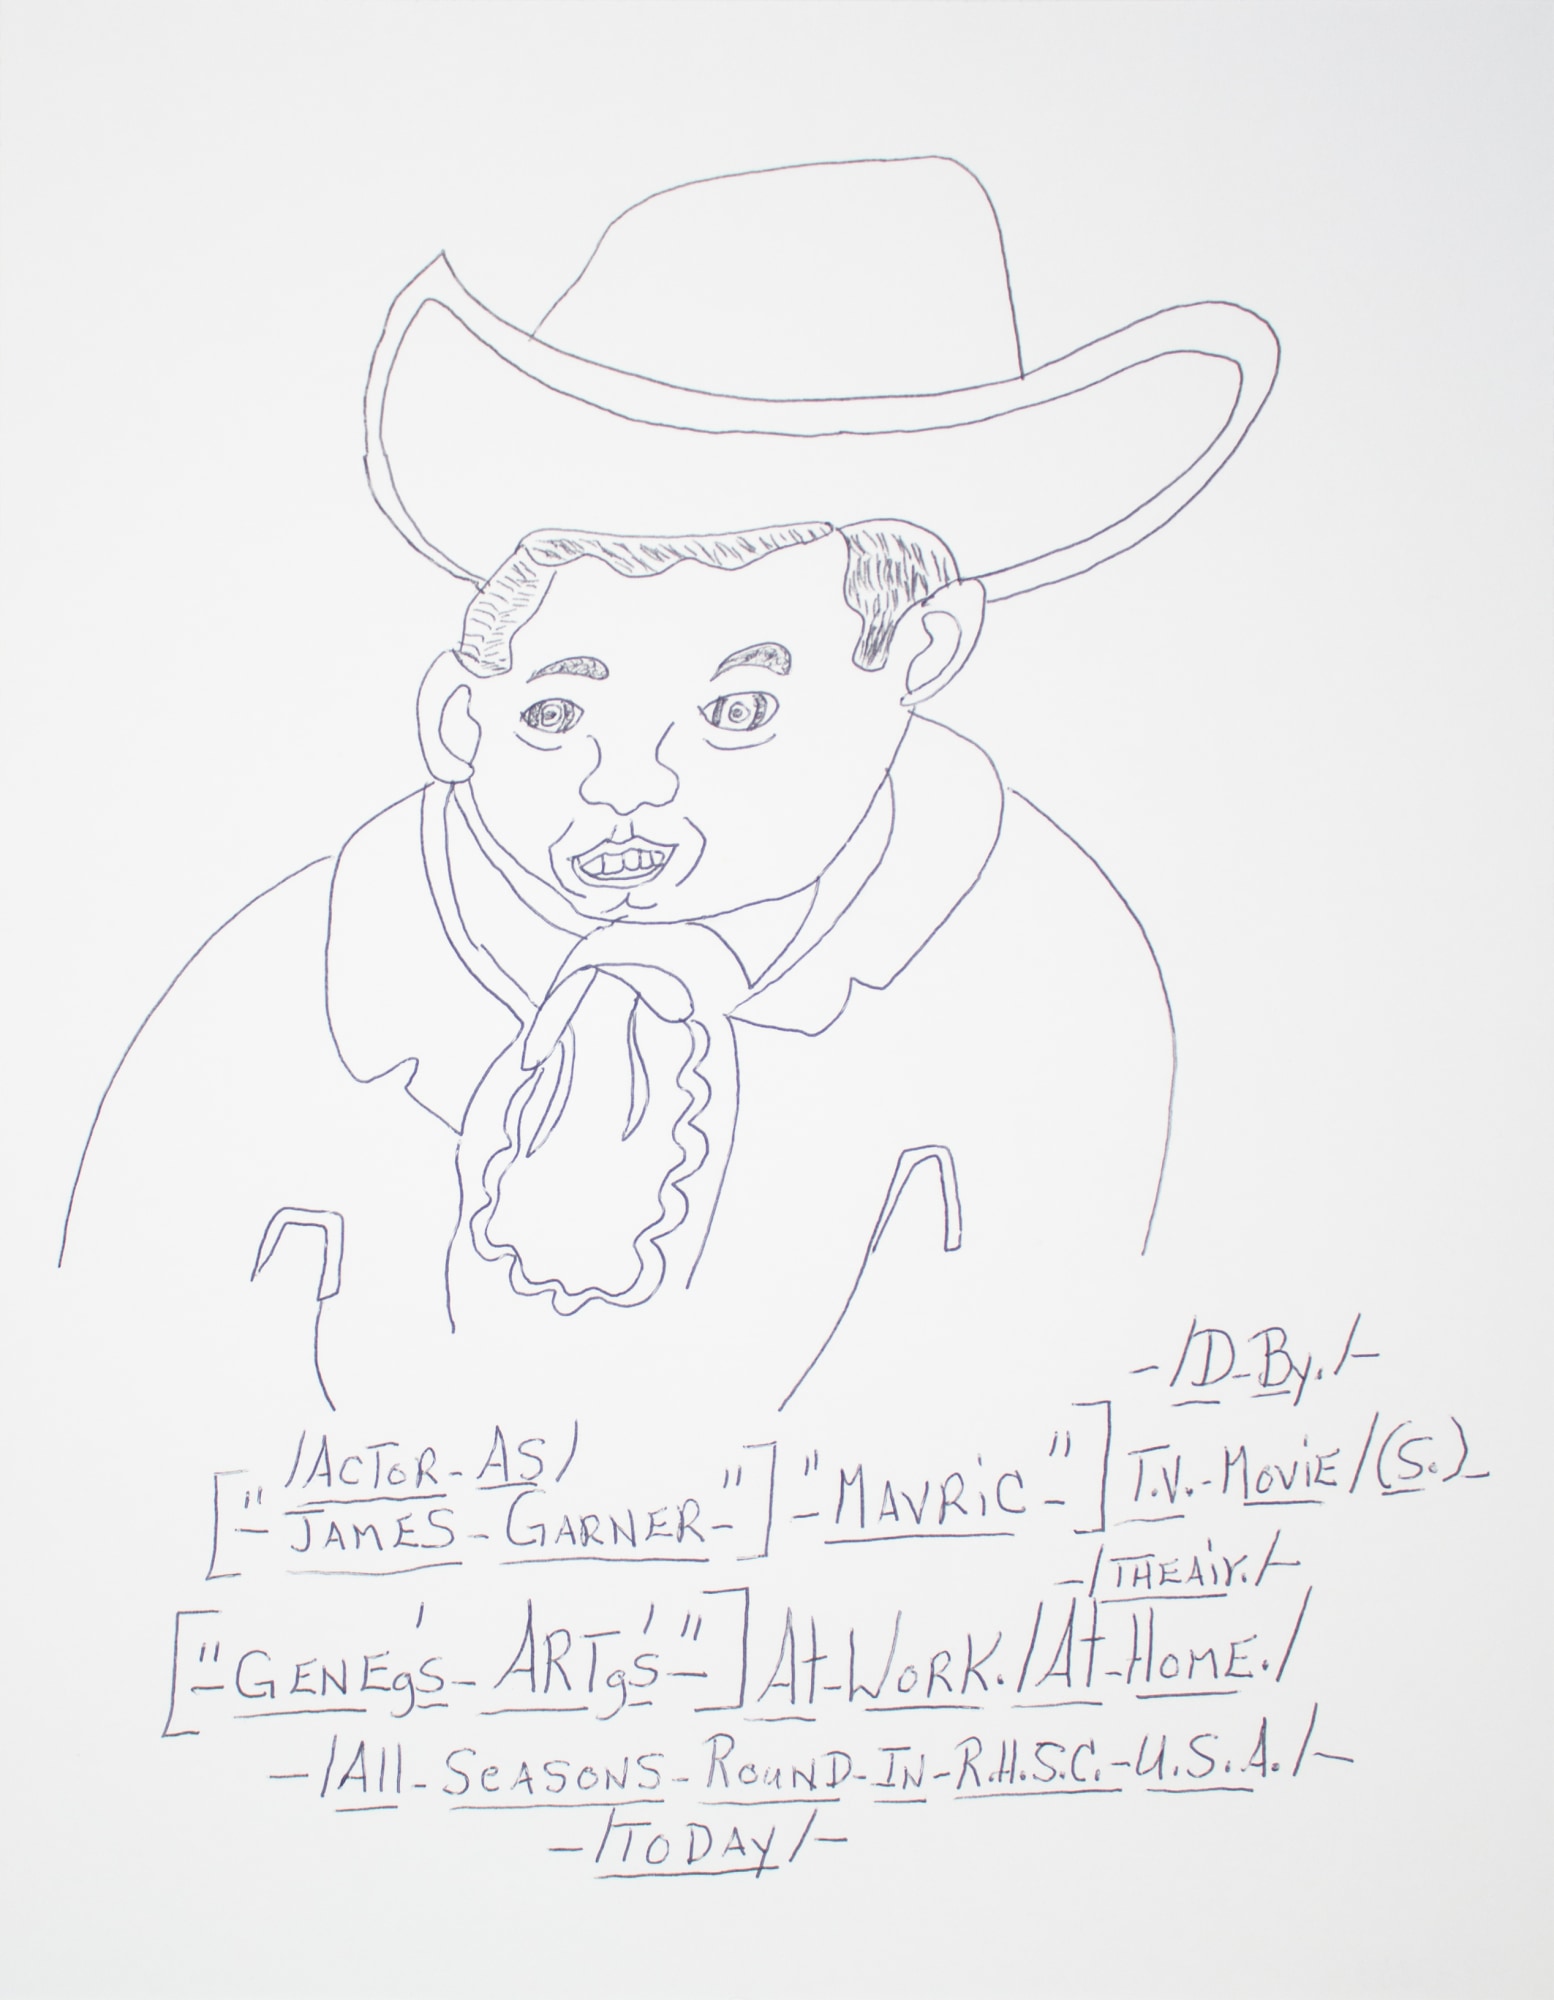 -/D-By./-
/ACTOR-AS/
["-JAMES-GARNER-"] "-MAVRiC-"] T.V.-MOViE/(S.)-
-/THEAir./-
["-GENEg'S-ARTgs'-"] At-WORK./At-HOME./
-/All-SeASONS-RouND-IN-R.H.S.C.-U.S.A./-
-/ToDAy/-